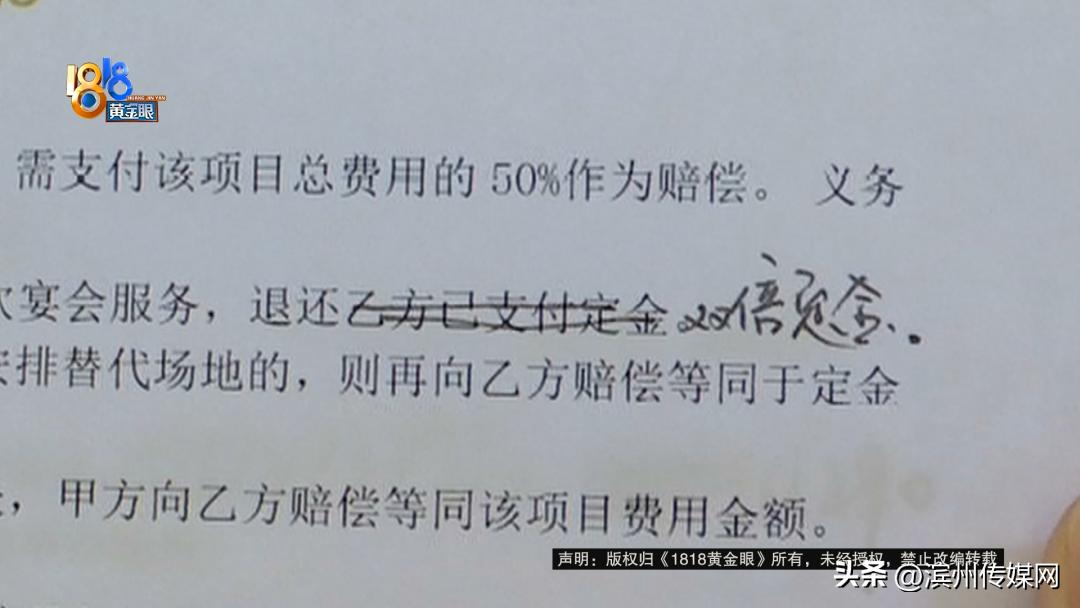 1818
HUANG JIN YAN
黄金眼
需支付该项目总费用的 50%作为赔偿。 义务
宴会服务，退还乙方已支付定金双倍定金。
排替代场地的，则再向乙方赔偿等同于定金
，甲方向乙方赔偿等同该项目费用金额。
声明：版权归《1818黄金眼》所有，未经授权，禁止改编转载
头条 @滨州传媒网